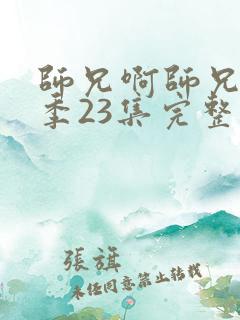 師兄啊師兄
季23集完整
張旗
未经同意禁止转载